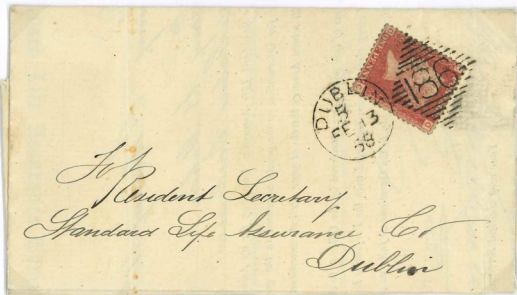 DUBLIN
FE 13
68
186
To
Resident Secretary
Standard Life Assurance Co
Dublin